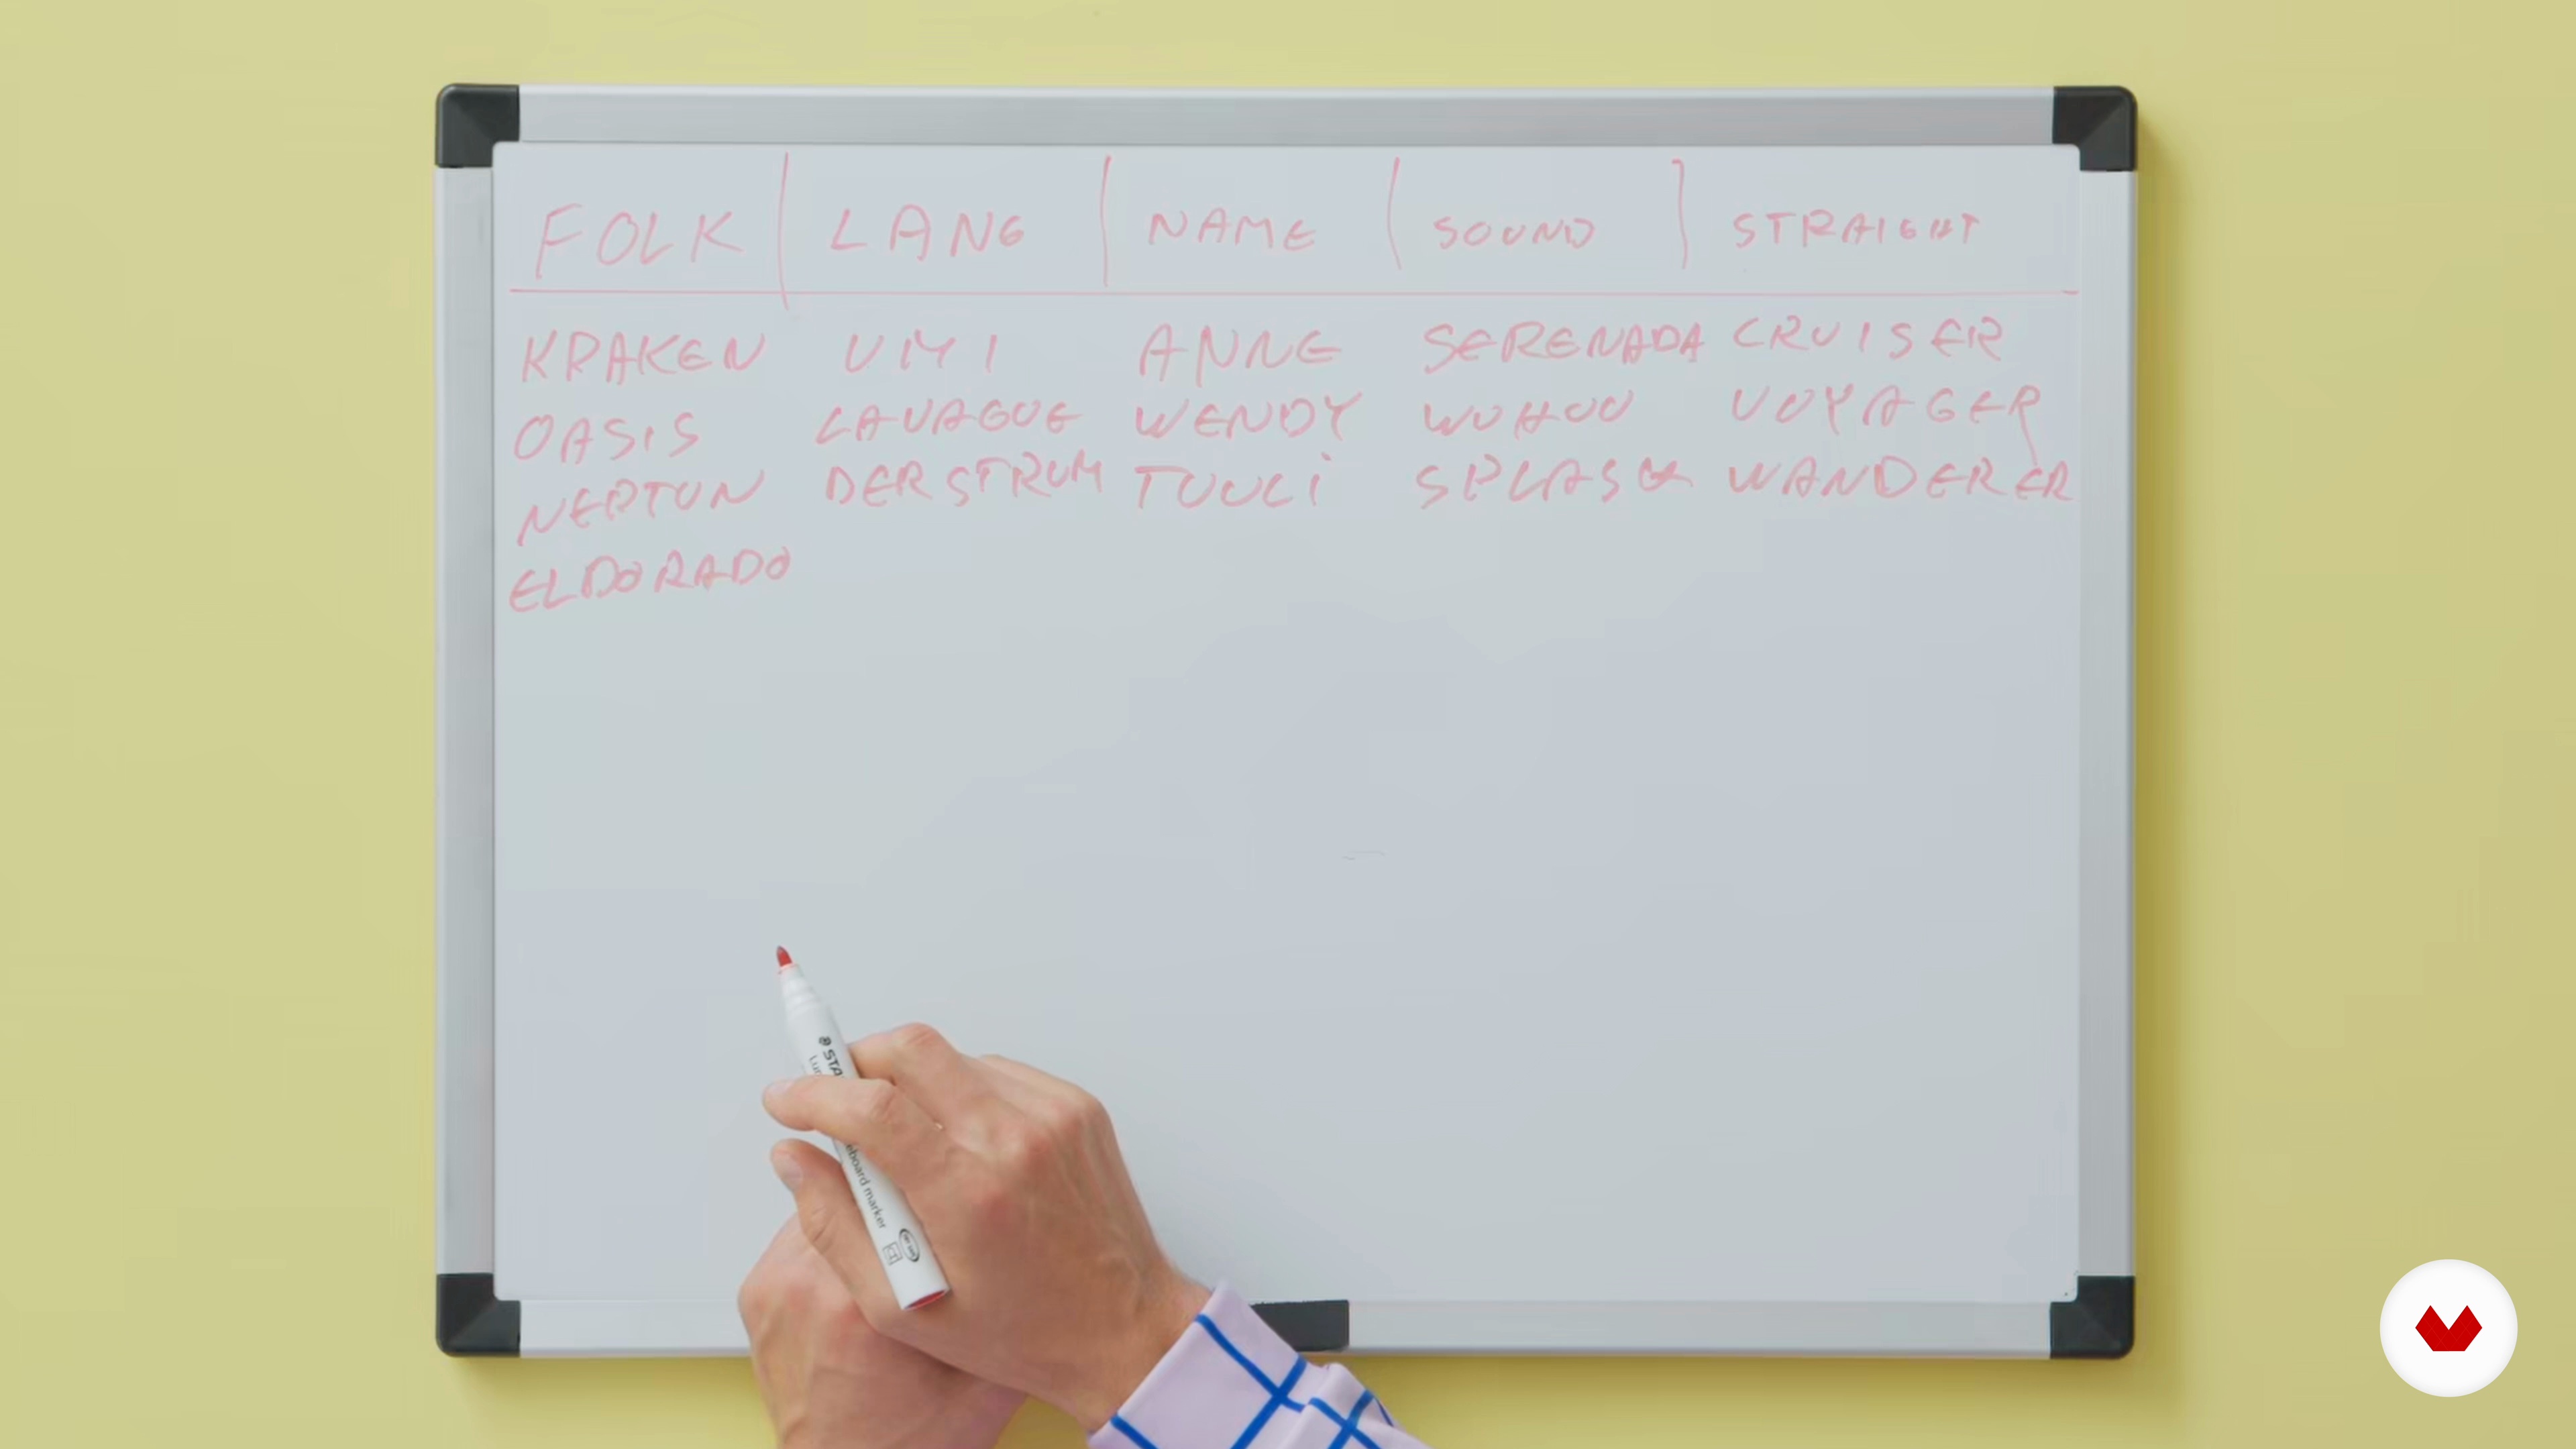 FOLK LANG NAME SOUND STRAIGHT
KRAKEN UMI ANNE SERENADA CRUISER
OASIS LAVAGUE WENDY WUHUU VOYAGER
NEPTUN DER STROM TUULI SPLASH WANDERER
ELDORADO
STA
eboard marker